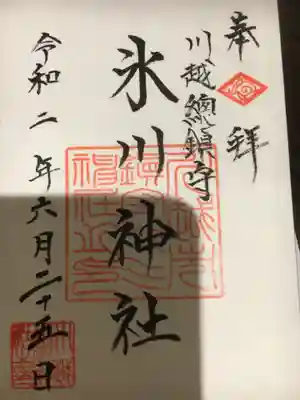 奉拝
川越總鎮守
氷川神社
令和二年六月二十五日